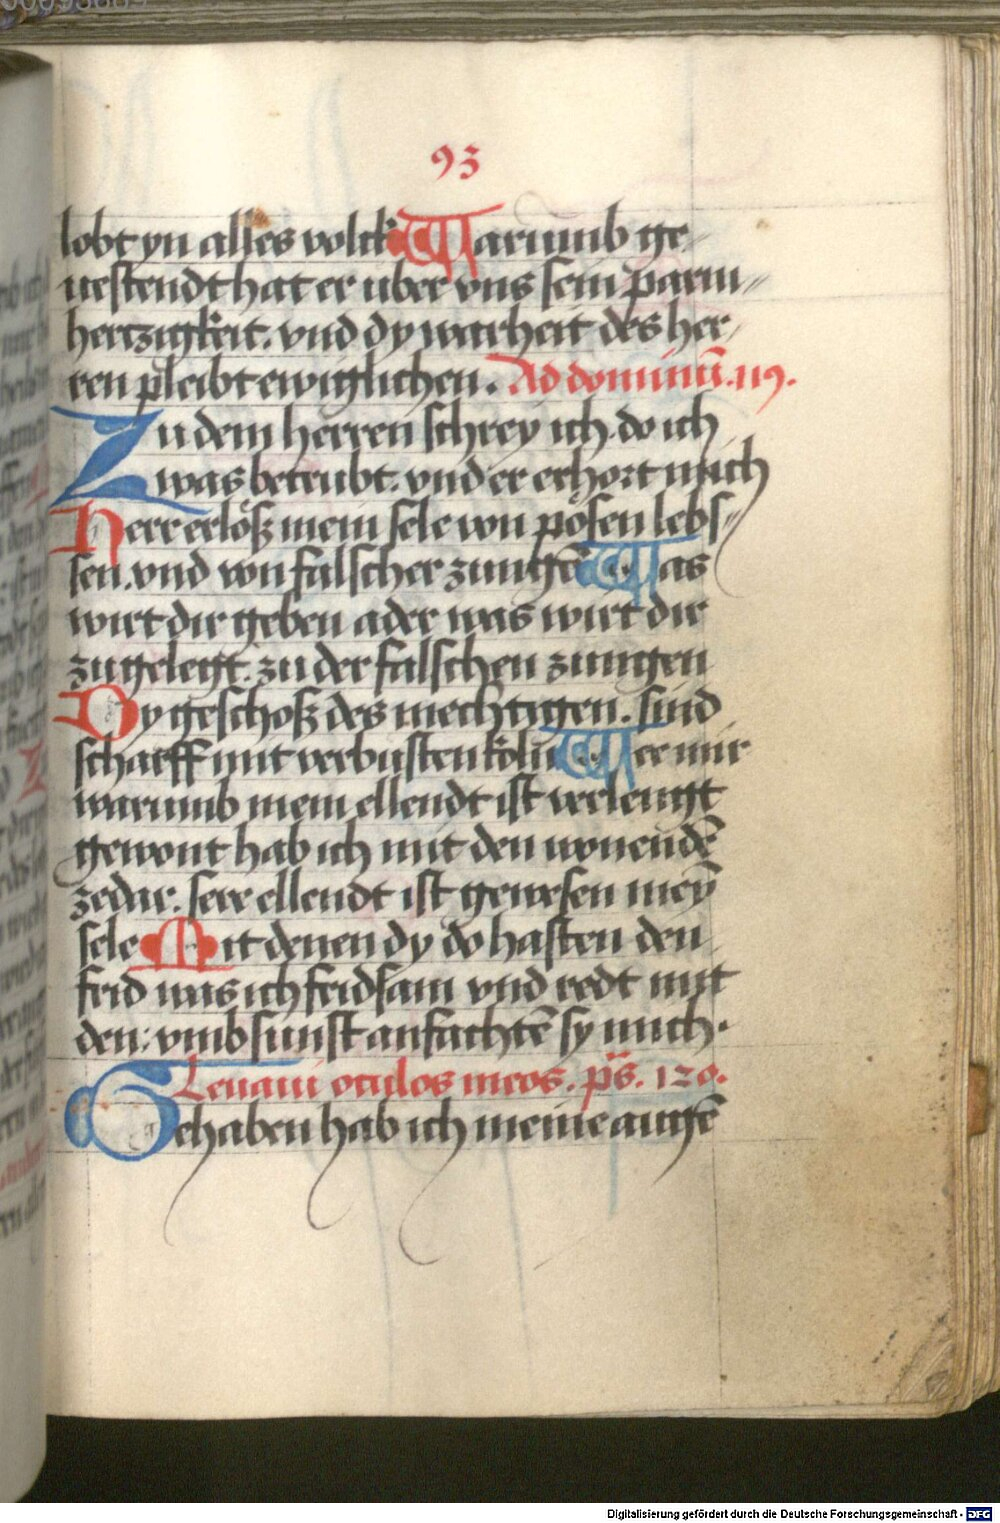 93
lobt yn alles volck Warumb ge-
uestendt hat er uber vns sein parm-
hertzigkeit. vnd dy warheit des her-
ren pleibt ewiglichen. Ad dominū. 119.
Zu dem herren schrey ich do ich
was betrubt. vnd er erhort mich
Herr erlösz mein sele von pösen lebs-
sen. vnd von falscher zungē Was
wirt dir geben ader was wirt dir
zu gelegt. zu der falschen zungen
Dy geschosz des mechtigen. sind
scharff mit verbusten koln Wee mir
warumb mein ellendt ist verlengt
gewont hab ich mit den wonendē
zedar. sere ellendt ist gewesen meȳ
sele Mit denen dy do hasten den
frid was ich fridsam vnd redt mit
den: vmb sunst anfachtē sy mich.
Leuaui oculos meos. ps. 120.
Gehaben hab ich meine augē
Digitalisierung gefördert durch die Deutsche Forschungsgemeinschaft - DFG